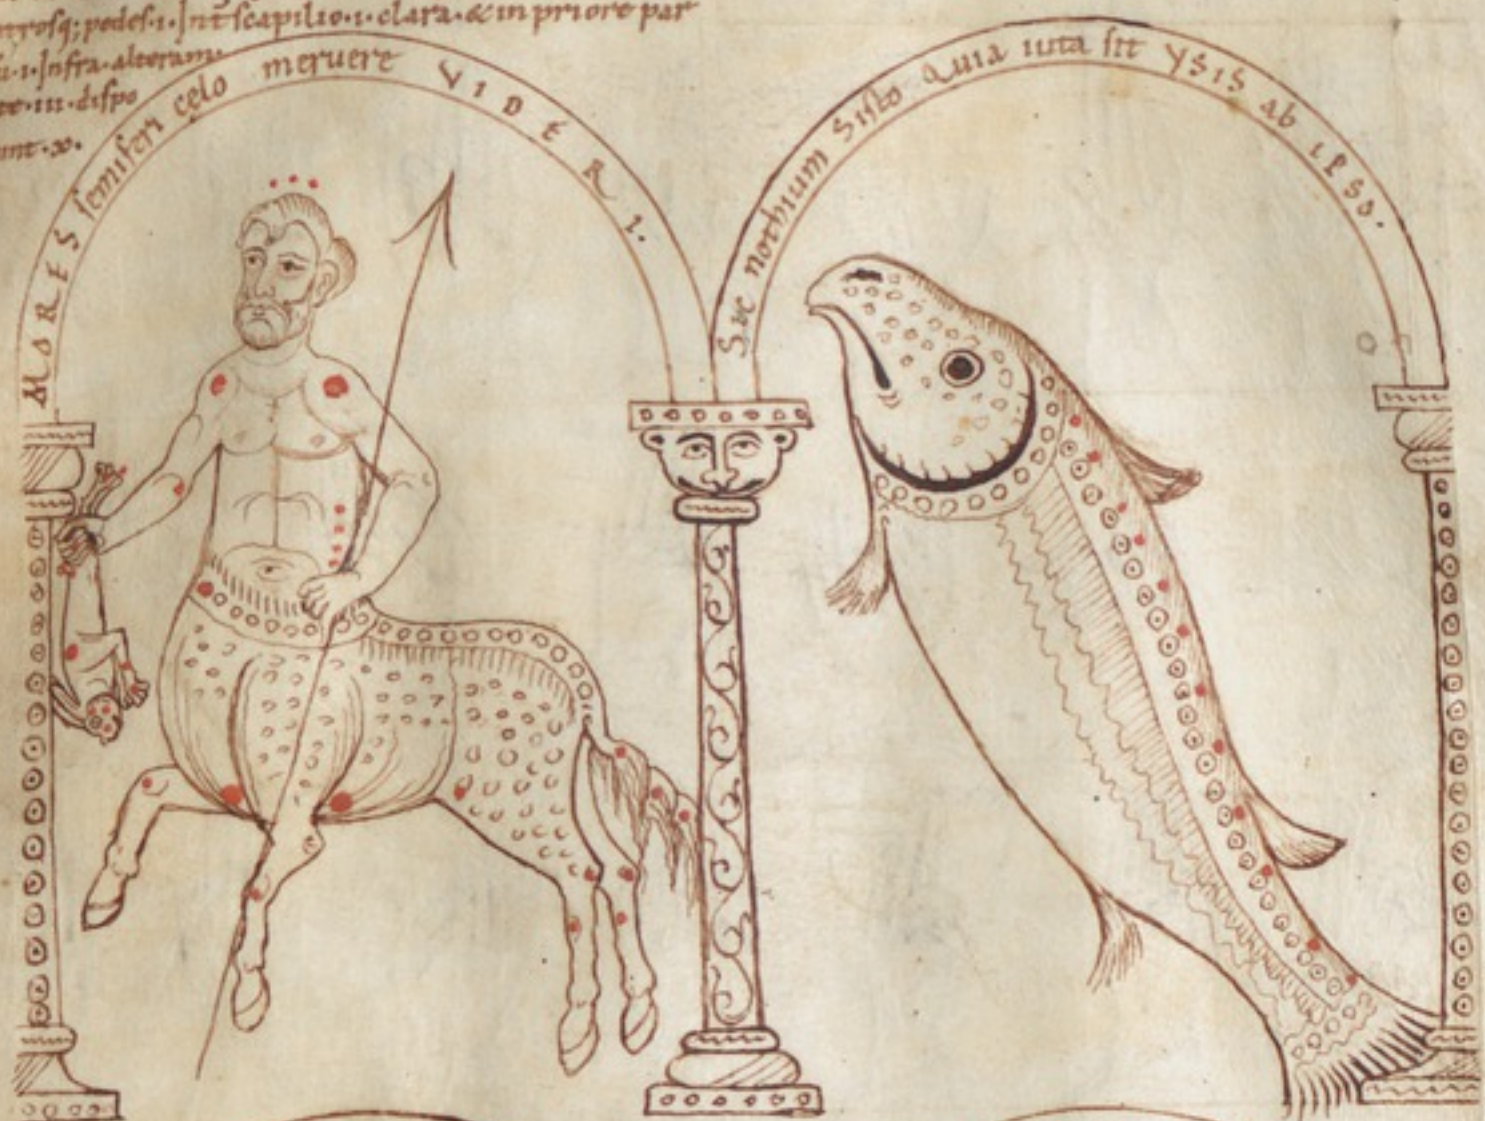 pedes·i·Int scapilio·i·clara·& in priore par
·i·Infra·alteram
te·iii·dispo
unt·x·
MORES semiferi celo meruere VIDERI·
Sic nothium Sisto Quia iuta sit YSIS ab ipso·